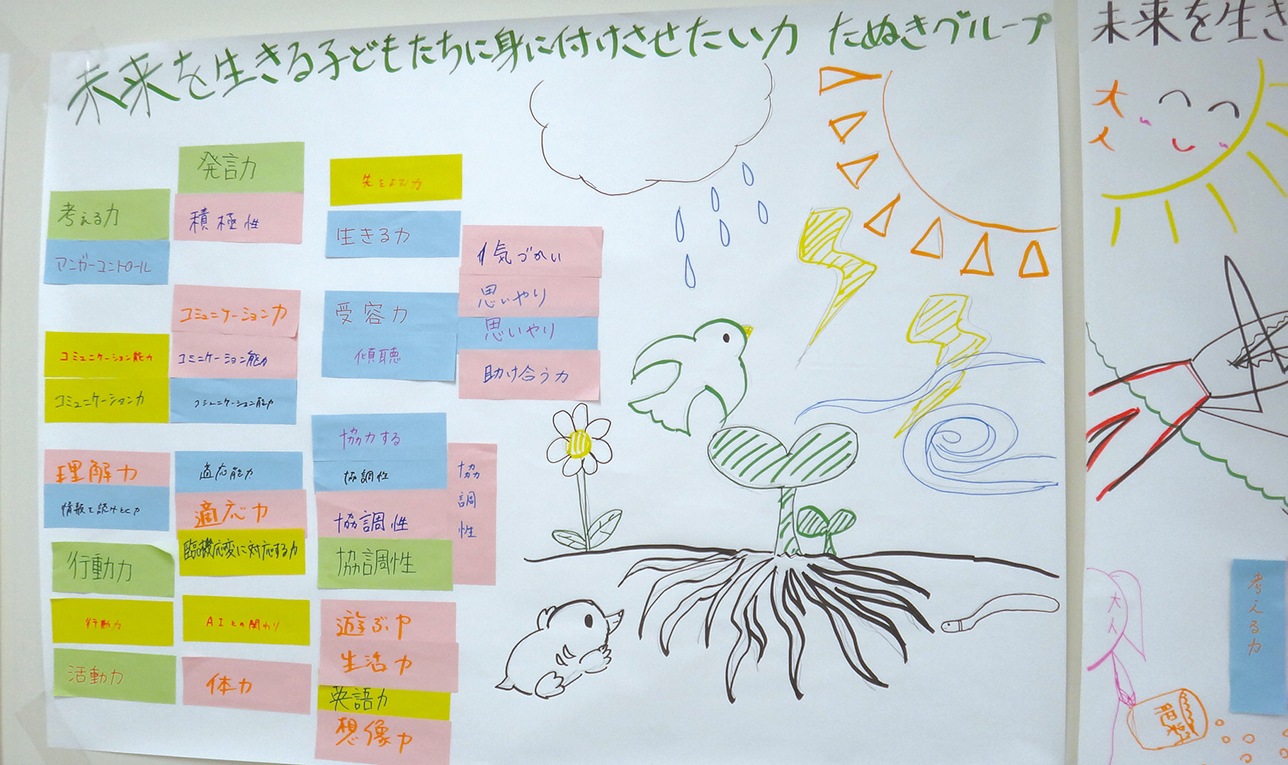 未来を生きる子どもたちに身に付けさせたい力 たぬきグループ
考える力
アンガーコントロール
コミュニケーション能力
コミュニケーション力
理解力
行動力
行動力
活動力
発言力
積極性
コミュニケーション力
コミュニケーション能力
コミュニケーション能力
適応能力
適応力
臨機応変に対応する力
AIとの関わり
体力
先をよむ力
生きる力
受容力
傾聴
協力する
協調性
協調性
協調性
遊ぶ力
生活力
英語力
想像力
気づかい
思いやり
思いやり
助け合う力
協調性
未来を生き
大人
考える力